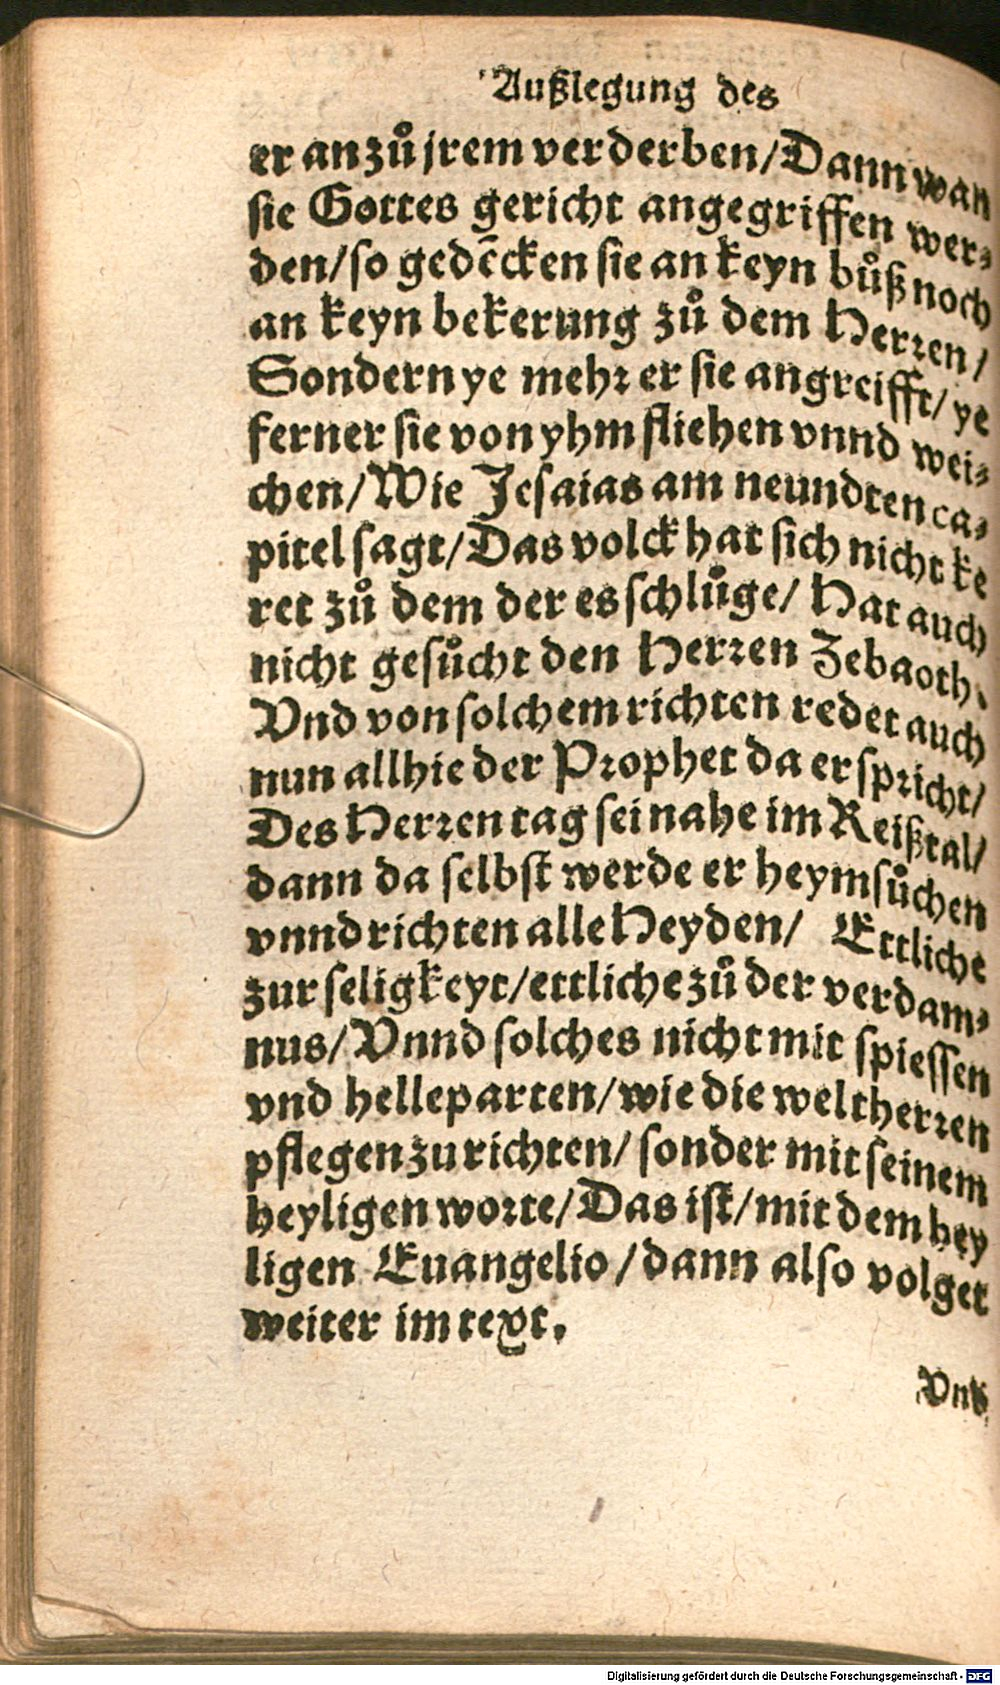 Außlegung des
er an zů jrem verderben/ Dann wan
sie Gottes gericht angegriffen wer⸗
den/ so gedēcken sie an keyn bůß noch
an keyn bekerung zů dem Herren/
Sondern ye mehr er sie angreifft/ ye
ferner sie von yhm fliehen vnnd wei⸗
chen/ Wie Jesaias am neundten ca⸗
pitel sagt/ Das volck hat sich nicht ke
ret zů dem der es schlůge/ Hat auch
nicht gesůcht den Herren Zebaoth.
Vnd von solchem richten redet auch
nun allhie der Prophet da er spricht/
Des Herren tag sei nahe im Reißtal/
dann da selbst werde er heymsůchen
vnnd richten alle Heyden/ Ettliche
zur seligkeyt/ ettliche zů der verdam⸗
nus/ Vnnd solches nicht mit spiessen
vnd helleparten/ wie die weltherren
pflegen zu richten/ sonder mit seinem
heyligen worte/ Das ist/ mit dem hey
ligen Euangelio/ dann also volget
weiter im text.
Vnd
Digitalisierung gefördert durch die Deutsche Forschungsgemeinschaft - DFG